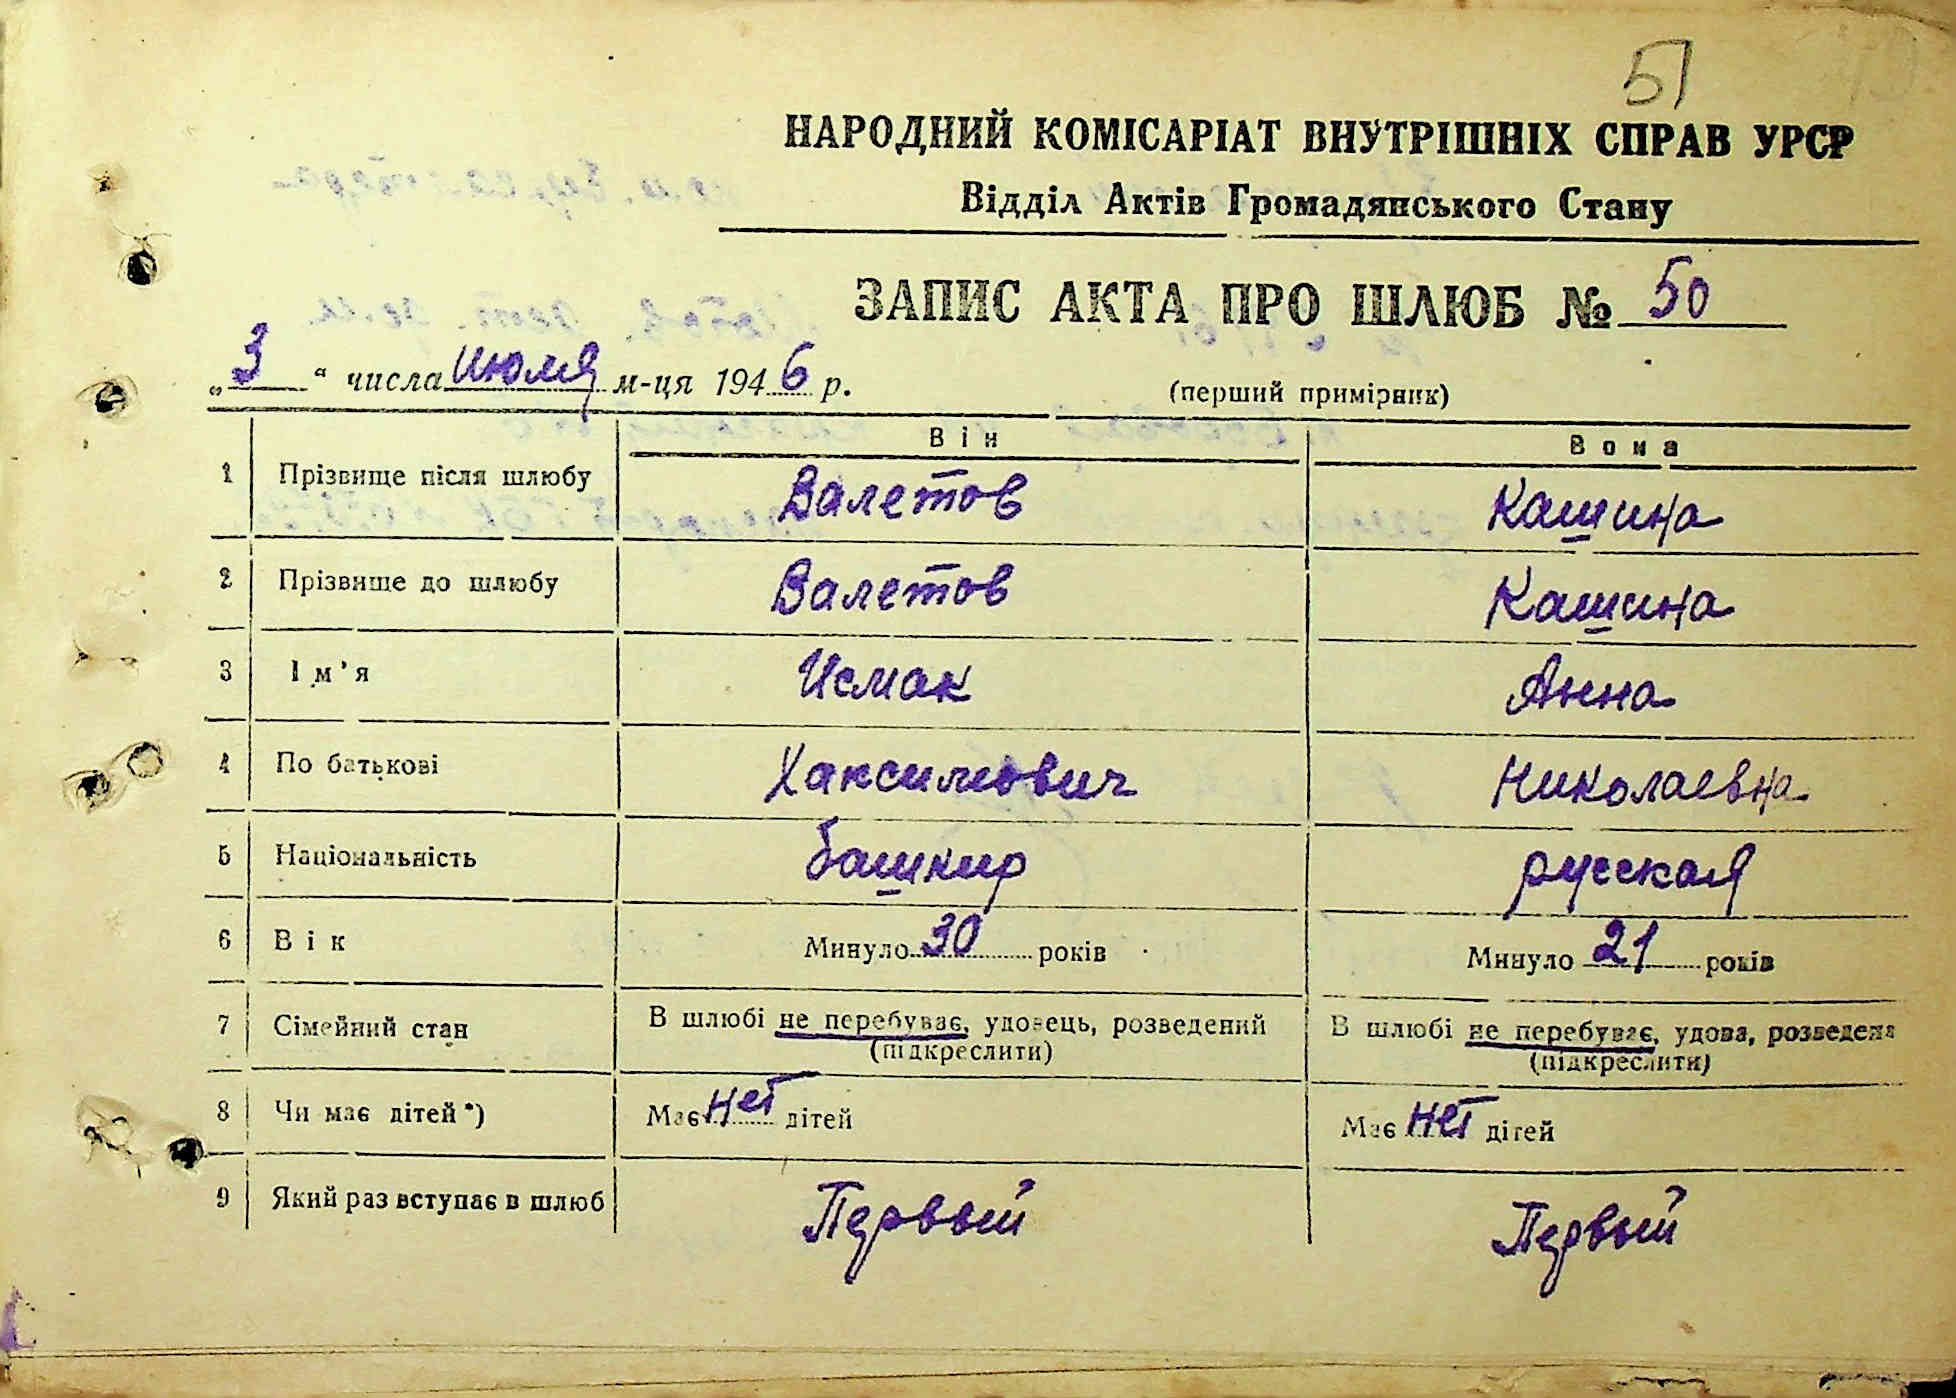 51
НАРОДНИЙ КОМІСАРІАТ ВНУТРІШНІХ СПРАВ УРСР
Відділ Актів Громадянського Стану
ЗАПИС АКТА ПРО ШЛЮБ № 50
„ 3 “ числа июля м-ця 1946 р.
(перший примірник)
Він Вона
1 Прізвище після шлюбу Валетов Кашина
2 Прізвище до шлюбу Валетов Кашина
3 Ім’я Исмак Анна
4 По батькові Хаксимович Николаевна
5 Національність башкир русская
6 Вік Минуло 30 років Минуло 21 років
7 Сімейний стан В шлюбі не перебуває, удовець, розведений В шлюбі не перебуває, удова, розведена
(підкреслити) (підкреслити)
8 Чи має дітей*) Має нет дітей Має нет дітей
9 Який раз вступає в шлюб Первый Первый